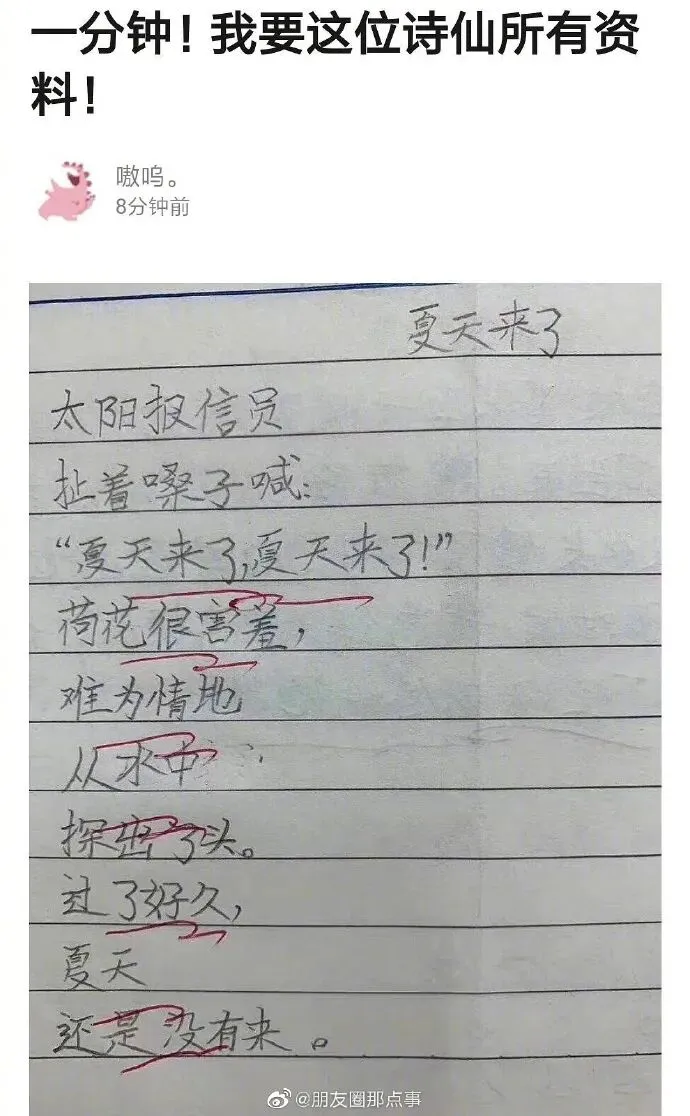 一分钟！我要这位诗仙所有资
料！
嗷呜。
8分钟前
夏天来了
太阳报信员
扯着嗓子喊：
“夏天来了,夏天来了!”
荷花很害羞，
难为情地
从水中
探出了头。
过了好久，
夏天
还是没有来。
@朋友圈那点事